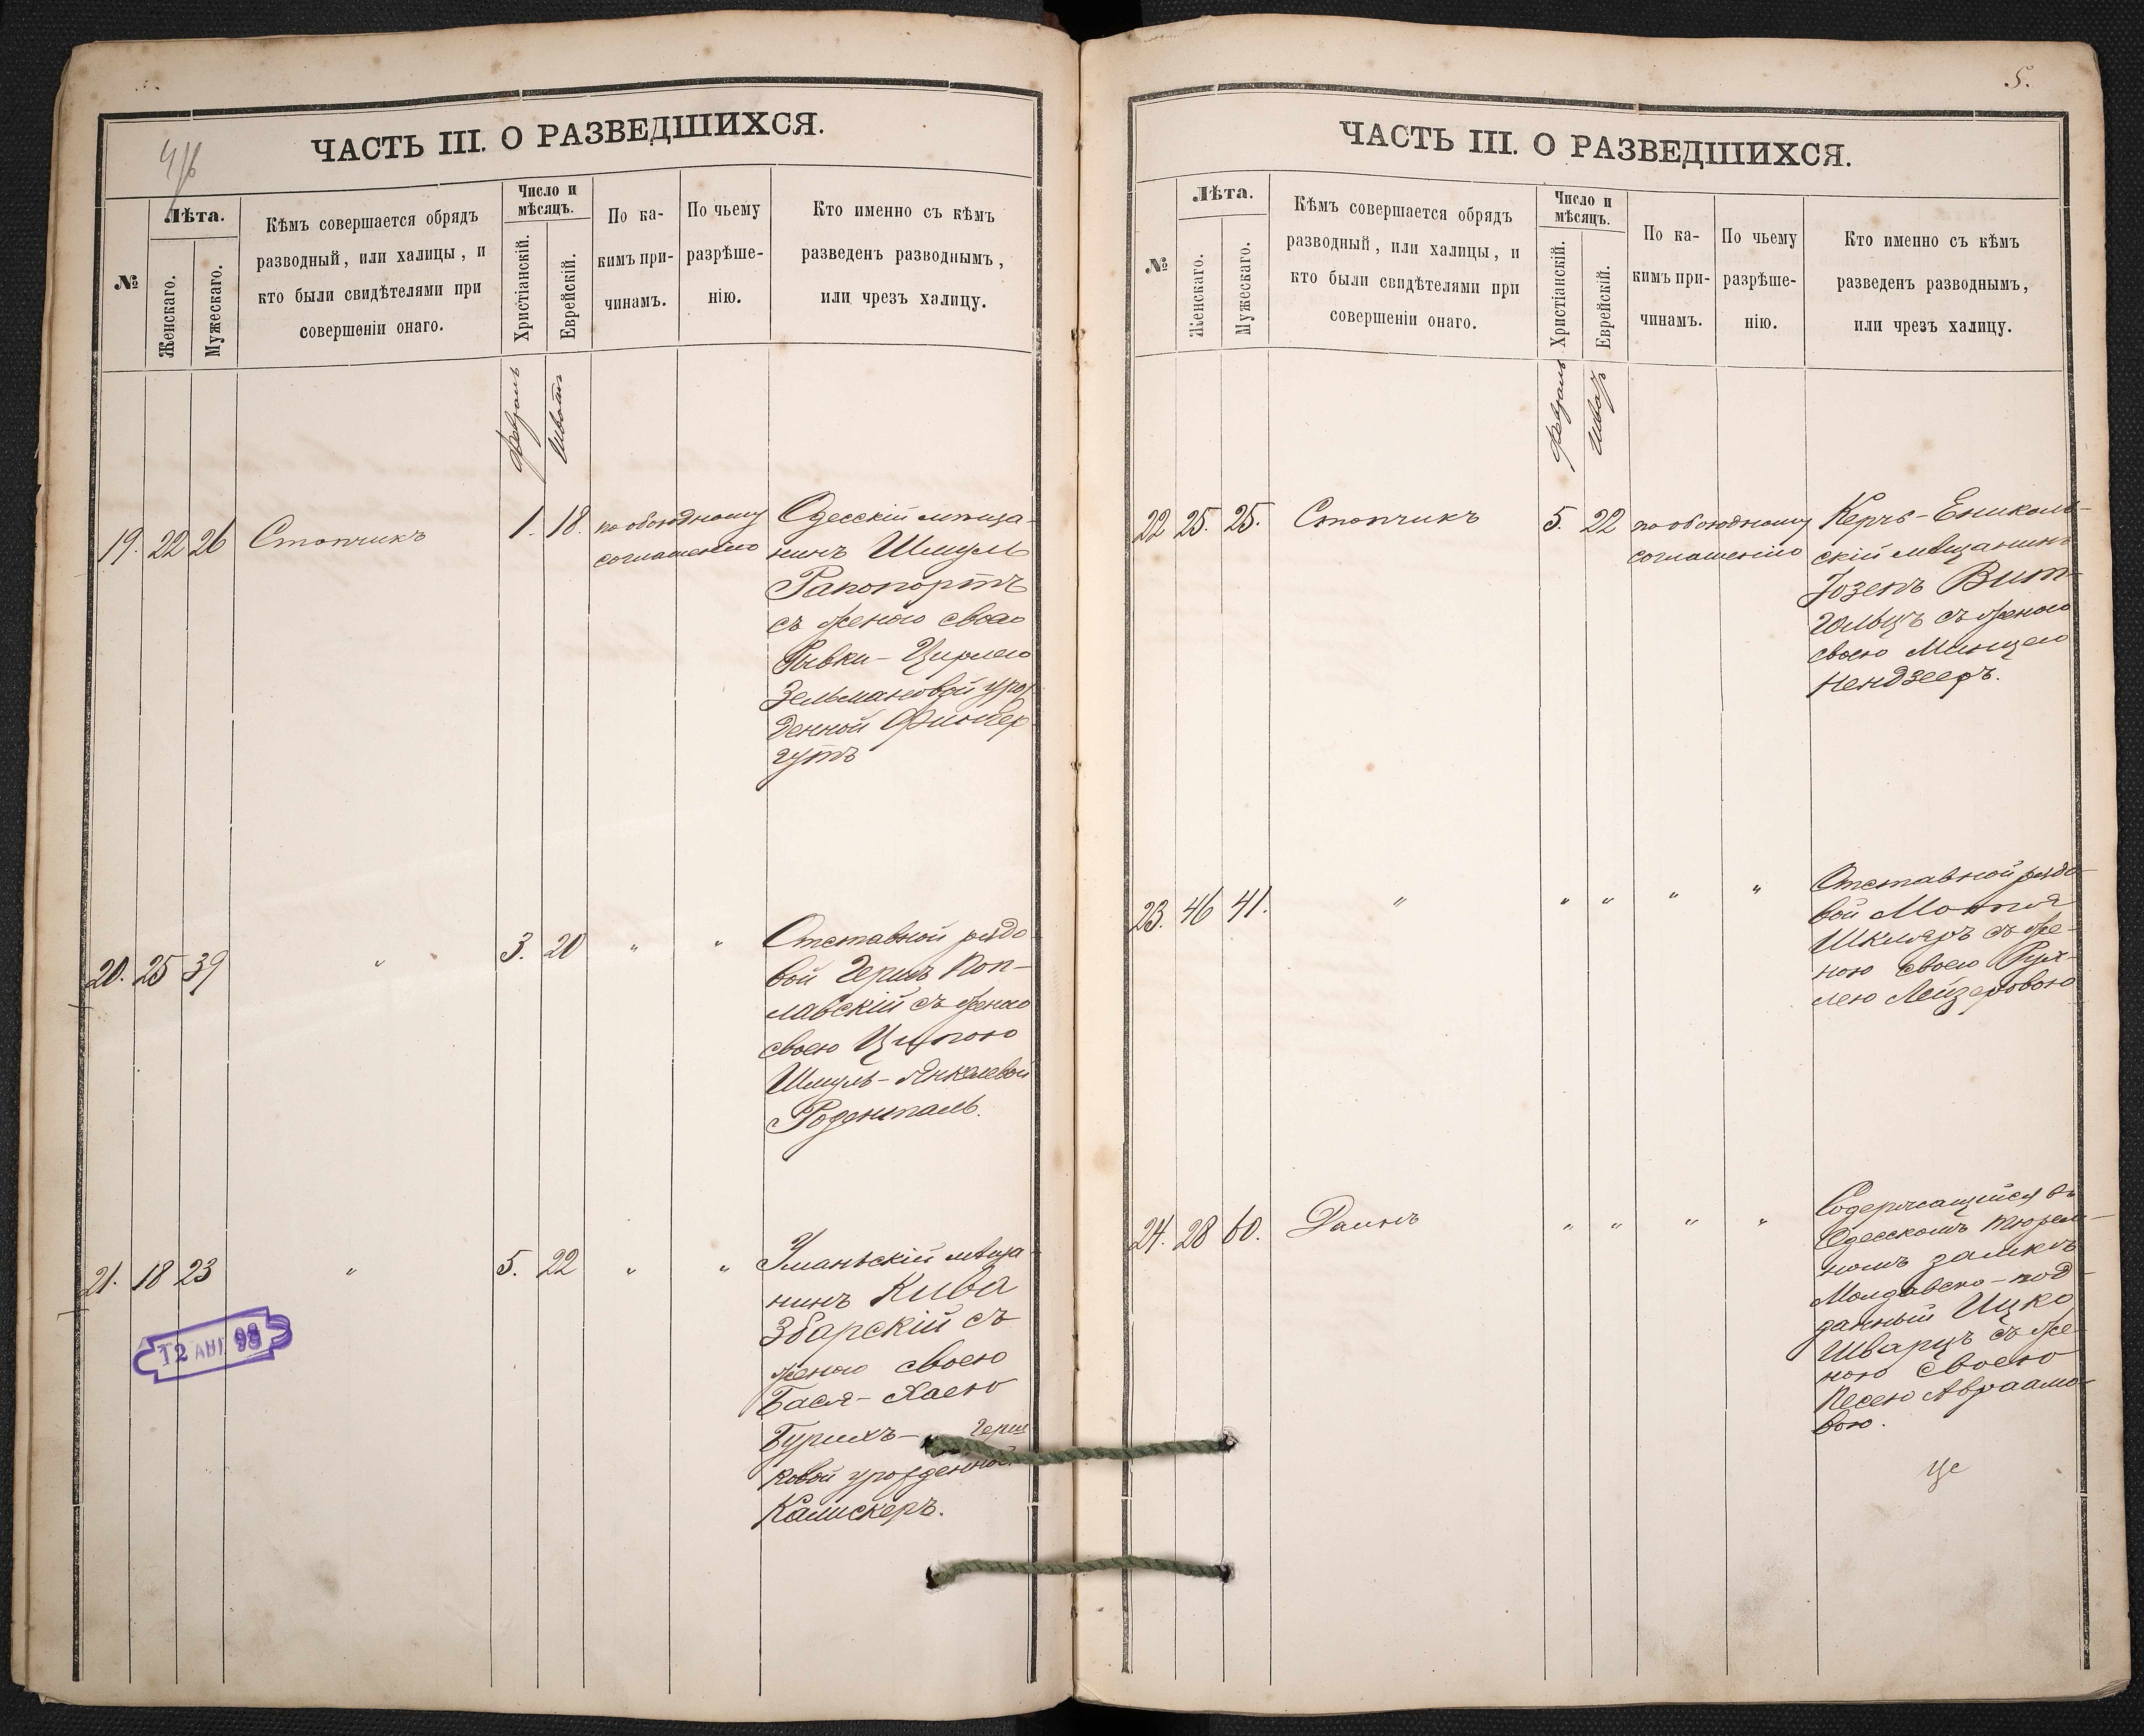 ЧАСТЬ III. О РАЗВЕДШИХСЯ.
№
Лѣта.
Женскаго.
Мужескаго.
Кѣмъ совершается обрядъ
разводный, или халицы, и
кто были свидѣтелями при
совершеніи онаго.
Число и
мѣсяцъ.
Христіанскій.
Еврейскій.
По ка-
кимъ при-
чинамъ.
По чьему
разрѣше-
нію.
Кто именно съ кѣмъ
разведенъ разводнымъ,
или чрезъ халицу.
Февраль
Шватъ
19. 22 26 Стопчикъ 1. 18. по обоюдному
соглашенію
Одесскій мѣща-
нинъ Шмуль
Рапопортъ
съ женою своею
Рывки-Цирлею
Зельмановой урож
денной
гутъ
20. 25 39 " 3. 20 " "
Отставной рядо-
вой Гершъ Поп-
лавскій съ женою
своею Ципою
Шмуль-Янкелевой
Роденталь.
21. 18 23 " 5. 22 " "
Уманьскій мѣща-
нинъ Кива
Збарскій съ
женою своею
Бася-Хаею
Бурихъ- Герш
ковой урожденной
Калискеръ.
12 АВГ 98
5.
ЧАСТЬ III. О РАЗВЕДШИХСЯ.
№
Лѣта.
Женскаго.
Мужескаго.
Кѣмъ совершается обрядъ
разводный, или халицы, и
кто были свидѣтелями при
совершеніи онаго.
Число и
мѣсяцъ.
Христіанскій.
Еврейскій.
По ка-
кимъ при-
чинамъ.
По чьему
разрѣше-
нію.
Кто именно съ кѣмъ
разведенъ разводнымъ,
или чрезъ халицу.
Февраль
Шватъ
22 25. 25. Стопчикъ 5. 22 по обоюдному
соглашенію
Керчь-Ениколь-
скій мѣщанинъ
Іозепъ Вит-
гольцъ съ женою
своею Минцею
Нендзееръ.
23. 46 41. " " " " "
Отставной рядо-
вой Мотя
Шкляръ съ же-
ною своею Рух-
лею Лейзеровою
24. 28 60. Даинъ " " " "
Содержащійся въ
Одесскомъ тюрем-
номъ замкѣ
Молдавско-под-
данный Ицко
Шварцъ съ же-
ною своею
Песею Авраамо-
вою.